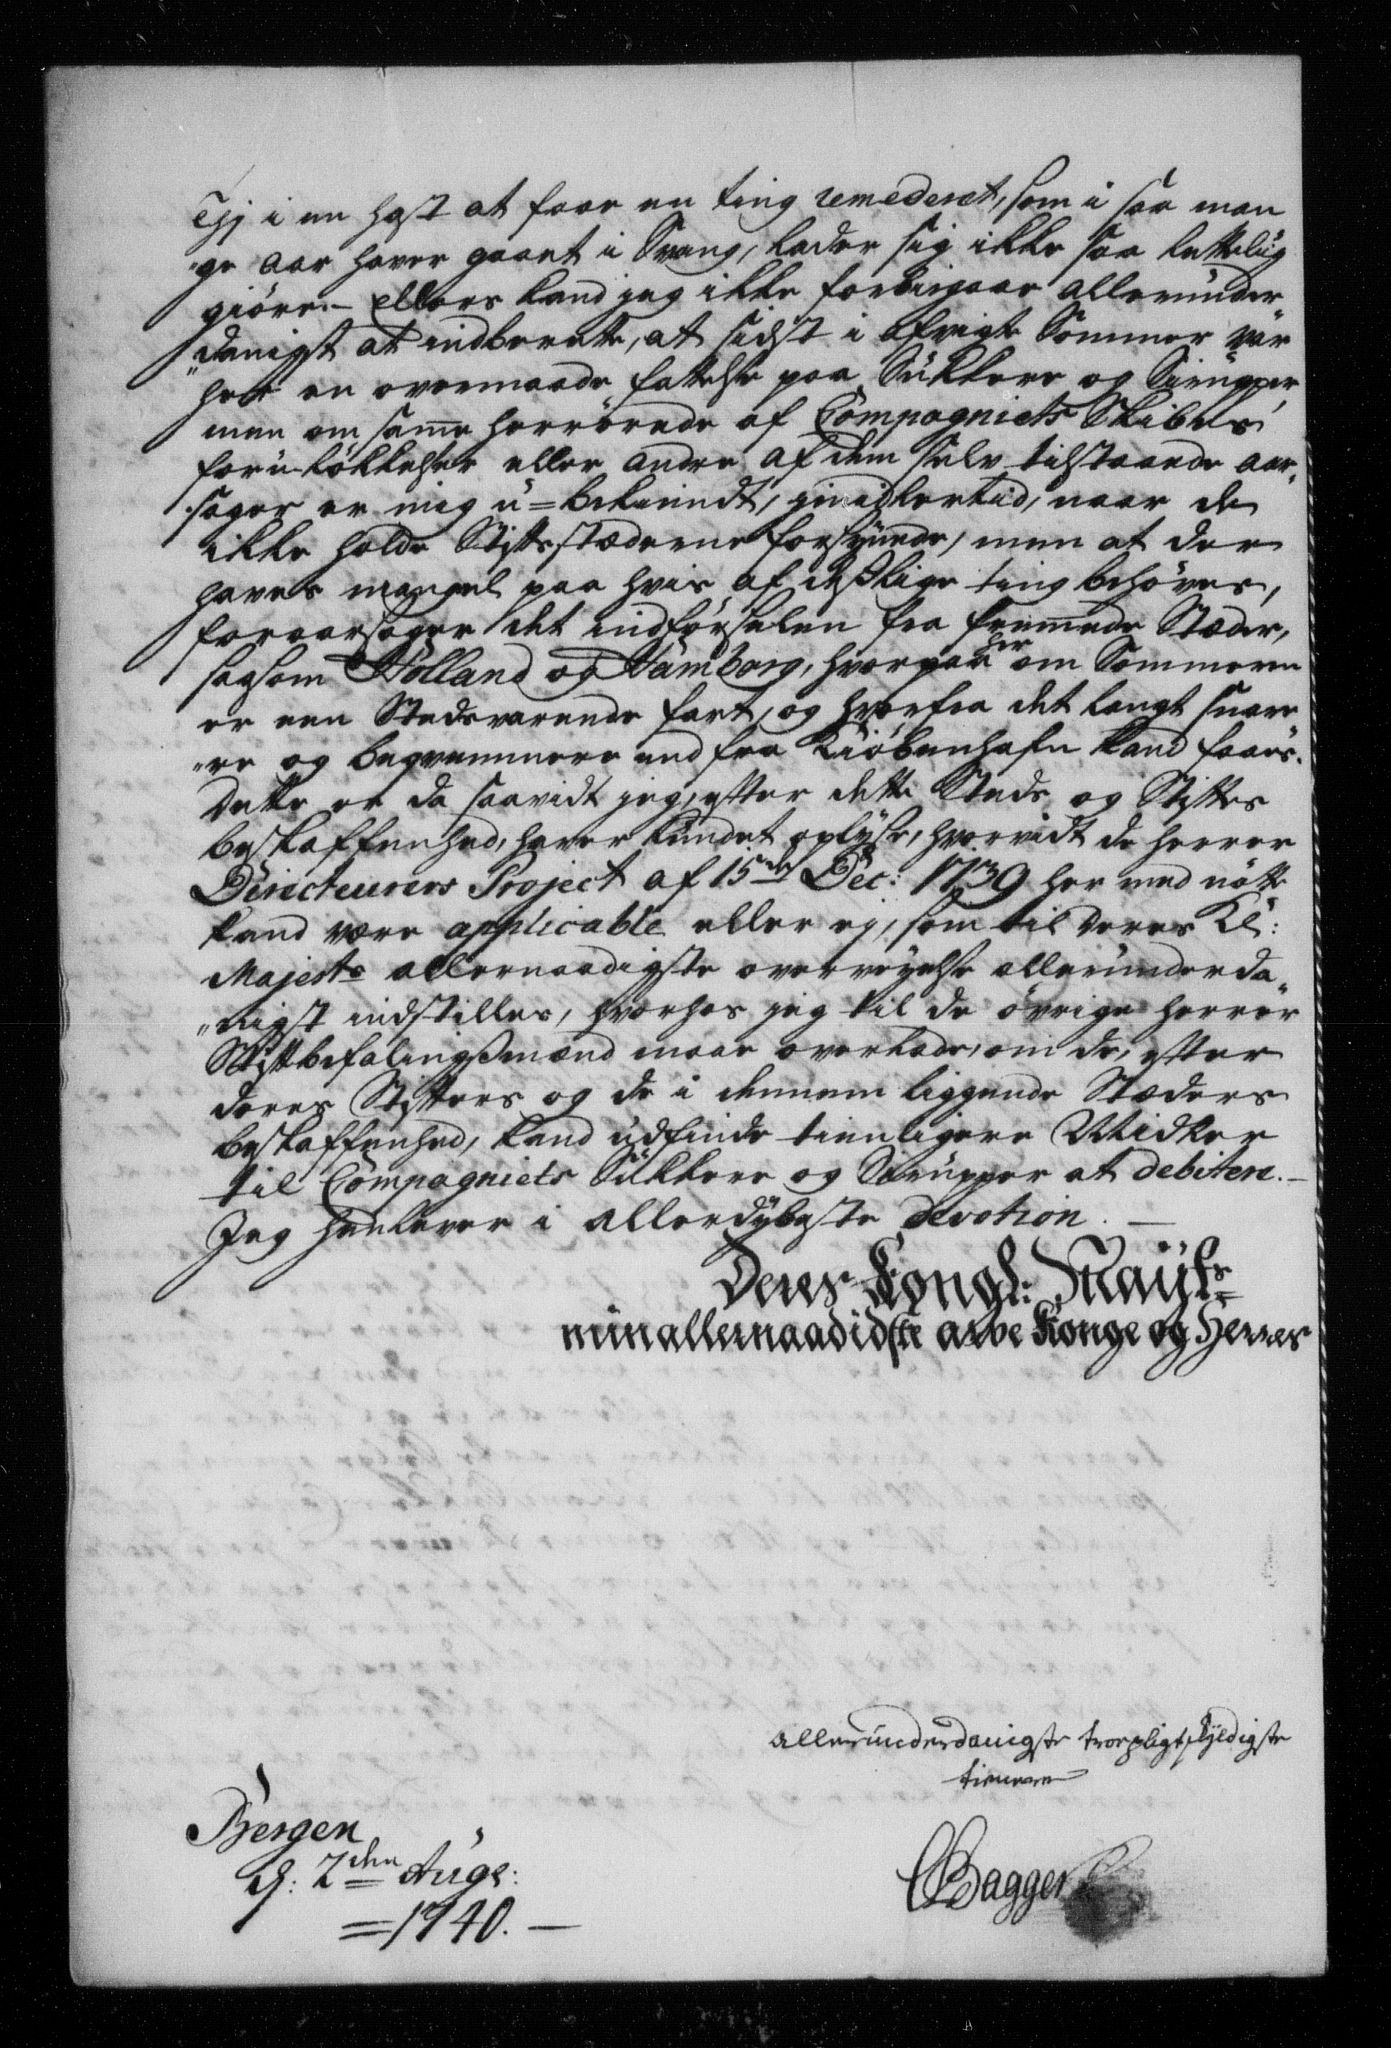 Thj i en hast at faae en ting remederet, som i saa man
„ge aar haver gaaet i Svang, lader sig ikke saa lettelig
giöre. – Ellers kand jeg ikke forbigaae allerunder
„danigst at indberette, at sidst i afvigte Sommer var
her en overmaade fattelse paa Sukkere og Siruper
men om samme herrörede af Compagniets Skibes
forulökkelse eller andre af dem selv tilstaaende aar„
„sager er mig u=bekiendt, imidlertid, naar de
ikke holde Stiftsstæderne forsÿnede, men at der
haves mangel paa hvis af deslige ting behöves,
foraarsager det indförselen fra fremmede Stæder,
saasom Holland og Hamborg, hvorpaa her om Sommeren
er een Stedsvarende fart, og hvorfra det langt snare
„re og beqvemmere end fra Kiöbenhafn kand faaes.
Dette er da saavidt jeg, efter dette Steds og Stiftes
beskaffenhed, haver kundet oplÿse, hvorvidt de herrer
Directeurers Project af 15de Dec: 1739 her med nötte
kand være applicable eller ej, som til Deres Kl:
Majests allernaadigste overveyelse allerunderda„
„nigst indstilles, hvorhos jeg til de övrige herrer
Stiftbefalingsmænd maae overlade, om de, efter
deres Stifters og de i dennem liggende Stæders
beskaffenhed, kand udfinde tienligere Midler
til Compagniets Sukkere og Sirupper at debitere. –
Jeg henlever i allerdÿbeste devotion. –
Deres Kongl: Mayts
min allernaadigste arve Konge og Herres
allerunderdanigste troepligtskÿldigste
tienere
Bergen
d: 2den Aug:
1740. –
CBagger